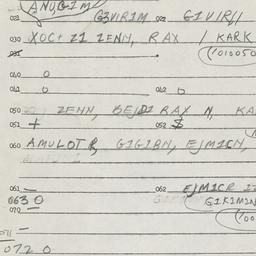 ANUGIM
021 G3VIRIM 022 GIVIR//
030 XOC+ Z1 ZENN, RAX / KARK
031 (/010050
040 0
041 0 042 0
050 ZENN, BEJD1 RAX N, KA
051 + 052 $
060 AMULOT R, GIGIBN, EJMICN,
061 — 062 EJMICR
063 0 GIKIMIN
070 —
071 —
072 0